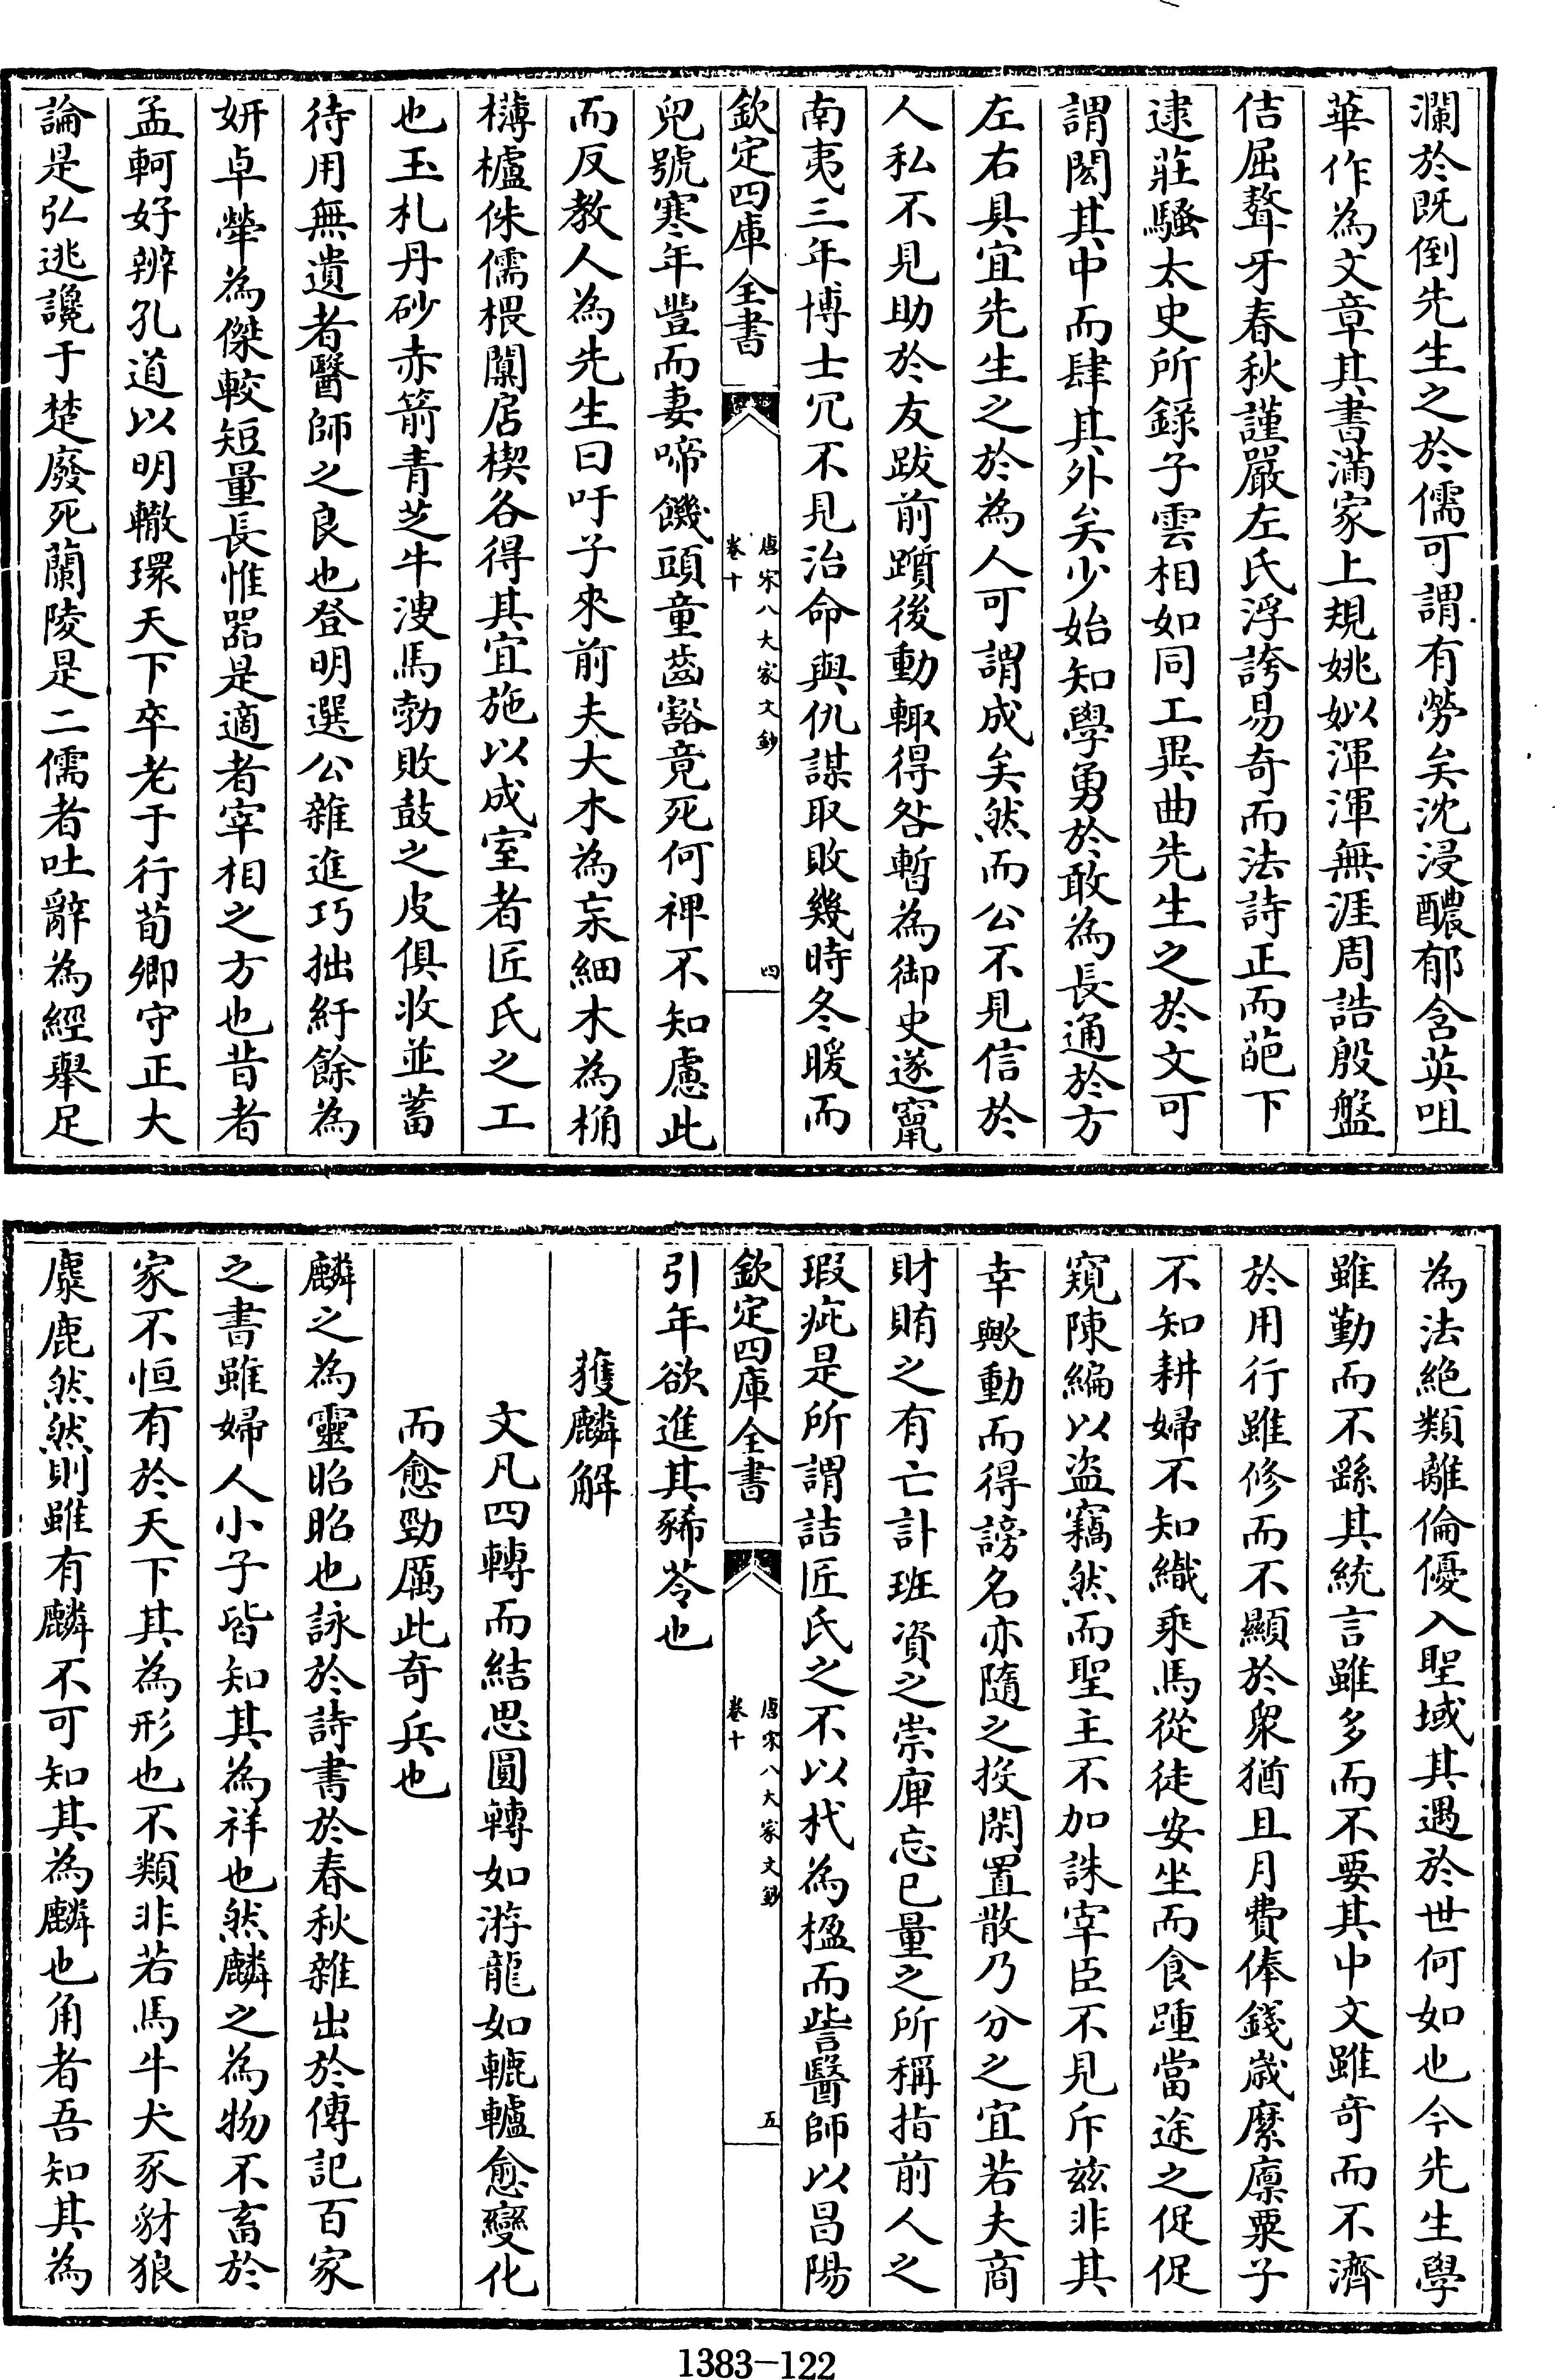 瀾於既倒先生之於儒可謂有勞矣沈浸醲郁含英咀
華作為文章其書滿家上規姚姒渾渾無涯周誥殷盤
佶屈聱牙春秋謹嚴左氏浮誇易奇而法詩正而葩下
逮莊騷太史所錄子雲相如同工異曲先生之於文可
謂閎其中而肆其外矣少始知學勇於敢為長通於方
左右具宜先生之於為人可謂成矣然而公不見信於
人私不見助於友跋前躓後動輒得咎暫為御史遂竄
南夷三年博士冗不見治命與仇謀取敗幾時冬暖而
欽定四庫全書
唐宋八大家文鈔
卷十
四
兒號寒年豐而妻啼饑頭童齒豁竟死何裨不知慮此
而反教人為先生曰吁子來前夫大木為杗細木為桷
欂櫨侏儒椳闑扂楔各得其宜施以成室者匠氏之工
也玉札丹砂赤箭青芝牛溲馬勃敗鼓之皮俱收並蓄
待用無遺者醫師之良也登明選公雜進巧拙紆餘為
妍卓犖為傑較短量長惟器是適者宰相之方也昔者
孟軻好辨孔道以明轍環天下卒老于行荀卿守正大
論是弘逃讒于楚廢死蘭陵是二儒者吐辭為經舉足
為法絕類離倫優入聖域其遇於世何如也今先生學
雖勤而不繇其統言雖多而不要其中文雖奇而不濟
於用行雖修而不顯於衆猶且月費俸錢歳縻廩粟子
不知耕婦不知織乘馬從徒安坐而食踵當途之促促
窺陳編以盜竊然而聖主不加誅宰臣不見斥兹非其
幸歟動而得謗名亦隨之投閑置散乃分之宜若夫商
財賄之有亡計班資之崇庳忘已量之所稱指前人之
瑕疵是所謂詰匠氏之不以杙為楹而訾醫師以昌陽
欽定四庫全書
唐宋八大家文鈔
卷十
五
引年欲進其豨苓也
獲麟解
文凡四轉而結思圓轉如游龍如轆轤愈變化
而愈勁厲此奇兵也
麟之為靈昭昭也詠於詩書於春秋雜出於傳記百家
之書雖婦人小子皆知其為祥也然麟之為物不畜於
家不恒有於天下其為形也不類非若馬牛犬豕豺狼
麋鹿然然則雖有麟不可知其為麟也角者吾知其為
1383-122